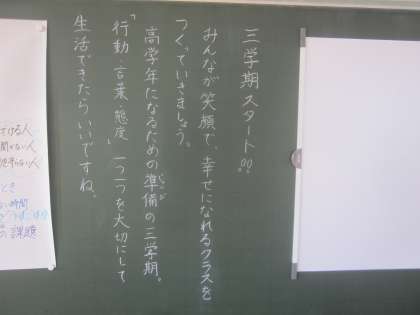 三学期スタート!!
みんなが笑顔で、幸せになれるクラスを
つくっていきましょう。
高学年になるための準備の三学期。
「行動・言葉・態度」一つ一つを大切にして
生活できたらいいですね。
る人
ない人
とき
時間
の課題